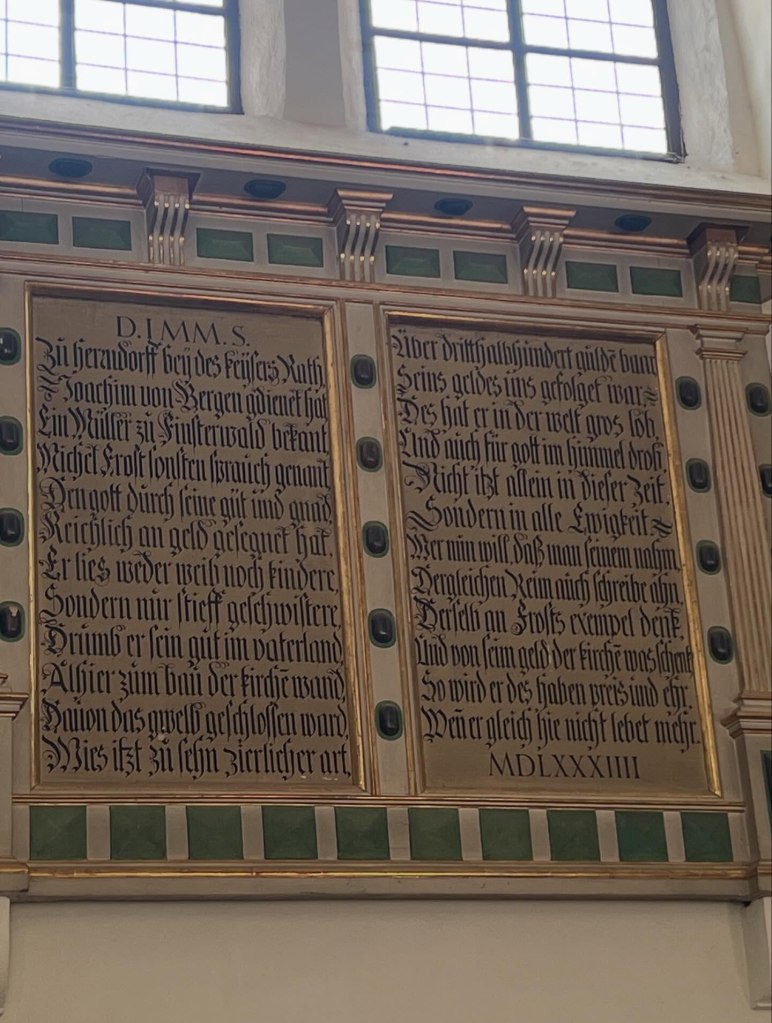 D.I.MM.S.
Zu herzndorff bey des keysers Rath,
Joachim von Bergen gdienet hat
Ein Müller zu Finsterwald bekant
Michel Frost sonsten sprauch genant
Den gott durch seine güt und gnad,
Reichlich an geld gesegnet hat.
Er lies weder weib noch kindere,
Sondern nur stieff geschwistere,
Drumb er sein gut im vaterland
Alhier zum bau der kirchē wand,
Dauon das gwelb geschlossen ward,
Wies itzt zu sehn zierlicher art,
Über dritthalbhundert güldē bann
Seins geldes uns gefolget war
Des hat er in der welt gros lob,
Und auch für gott im himmel drob,
Nicht itzt allein in dieser Zeit,
Sondern in alle Ewigkeit
Wer nun will daß man seinem nahm,
Dergleichen Reim auch schreibe ahn,
Derselb an Frosts exempel denk,
Und von seim geld der kirchē was schenk
So wird er des haben preis und ehr,
Weñ er gleich hie nicht lebet mehr.
MDLXXXIIII